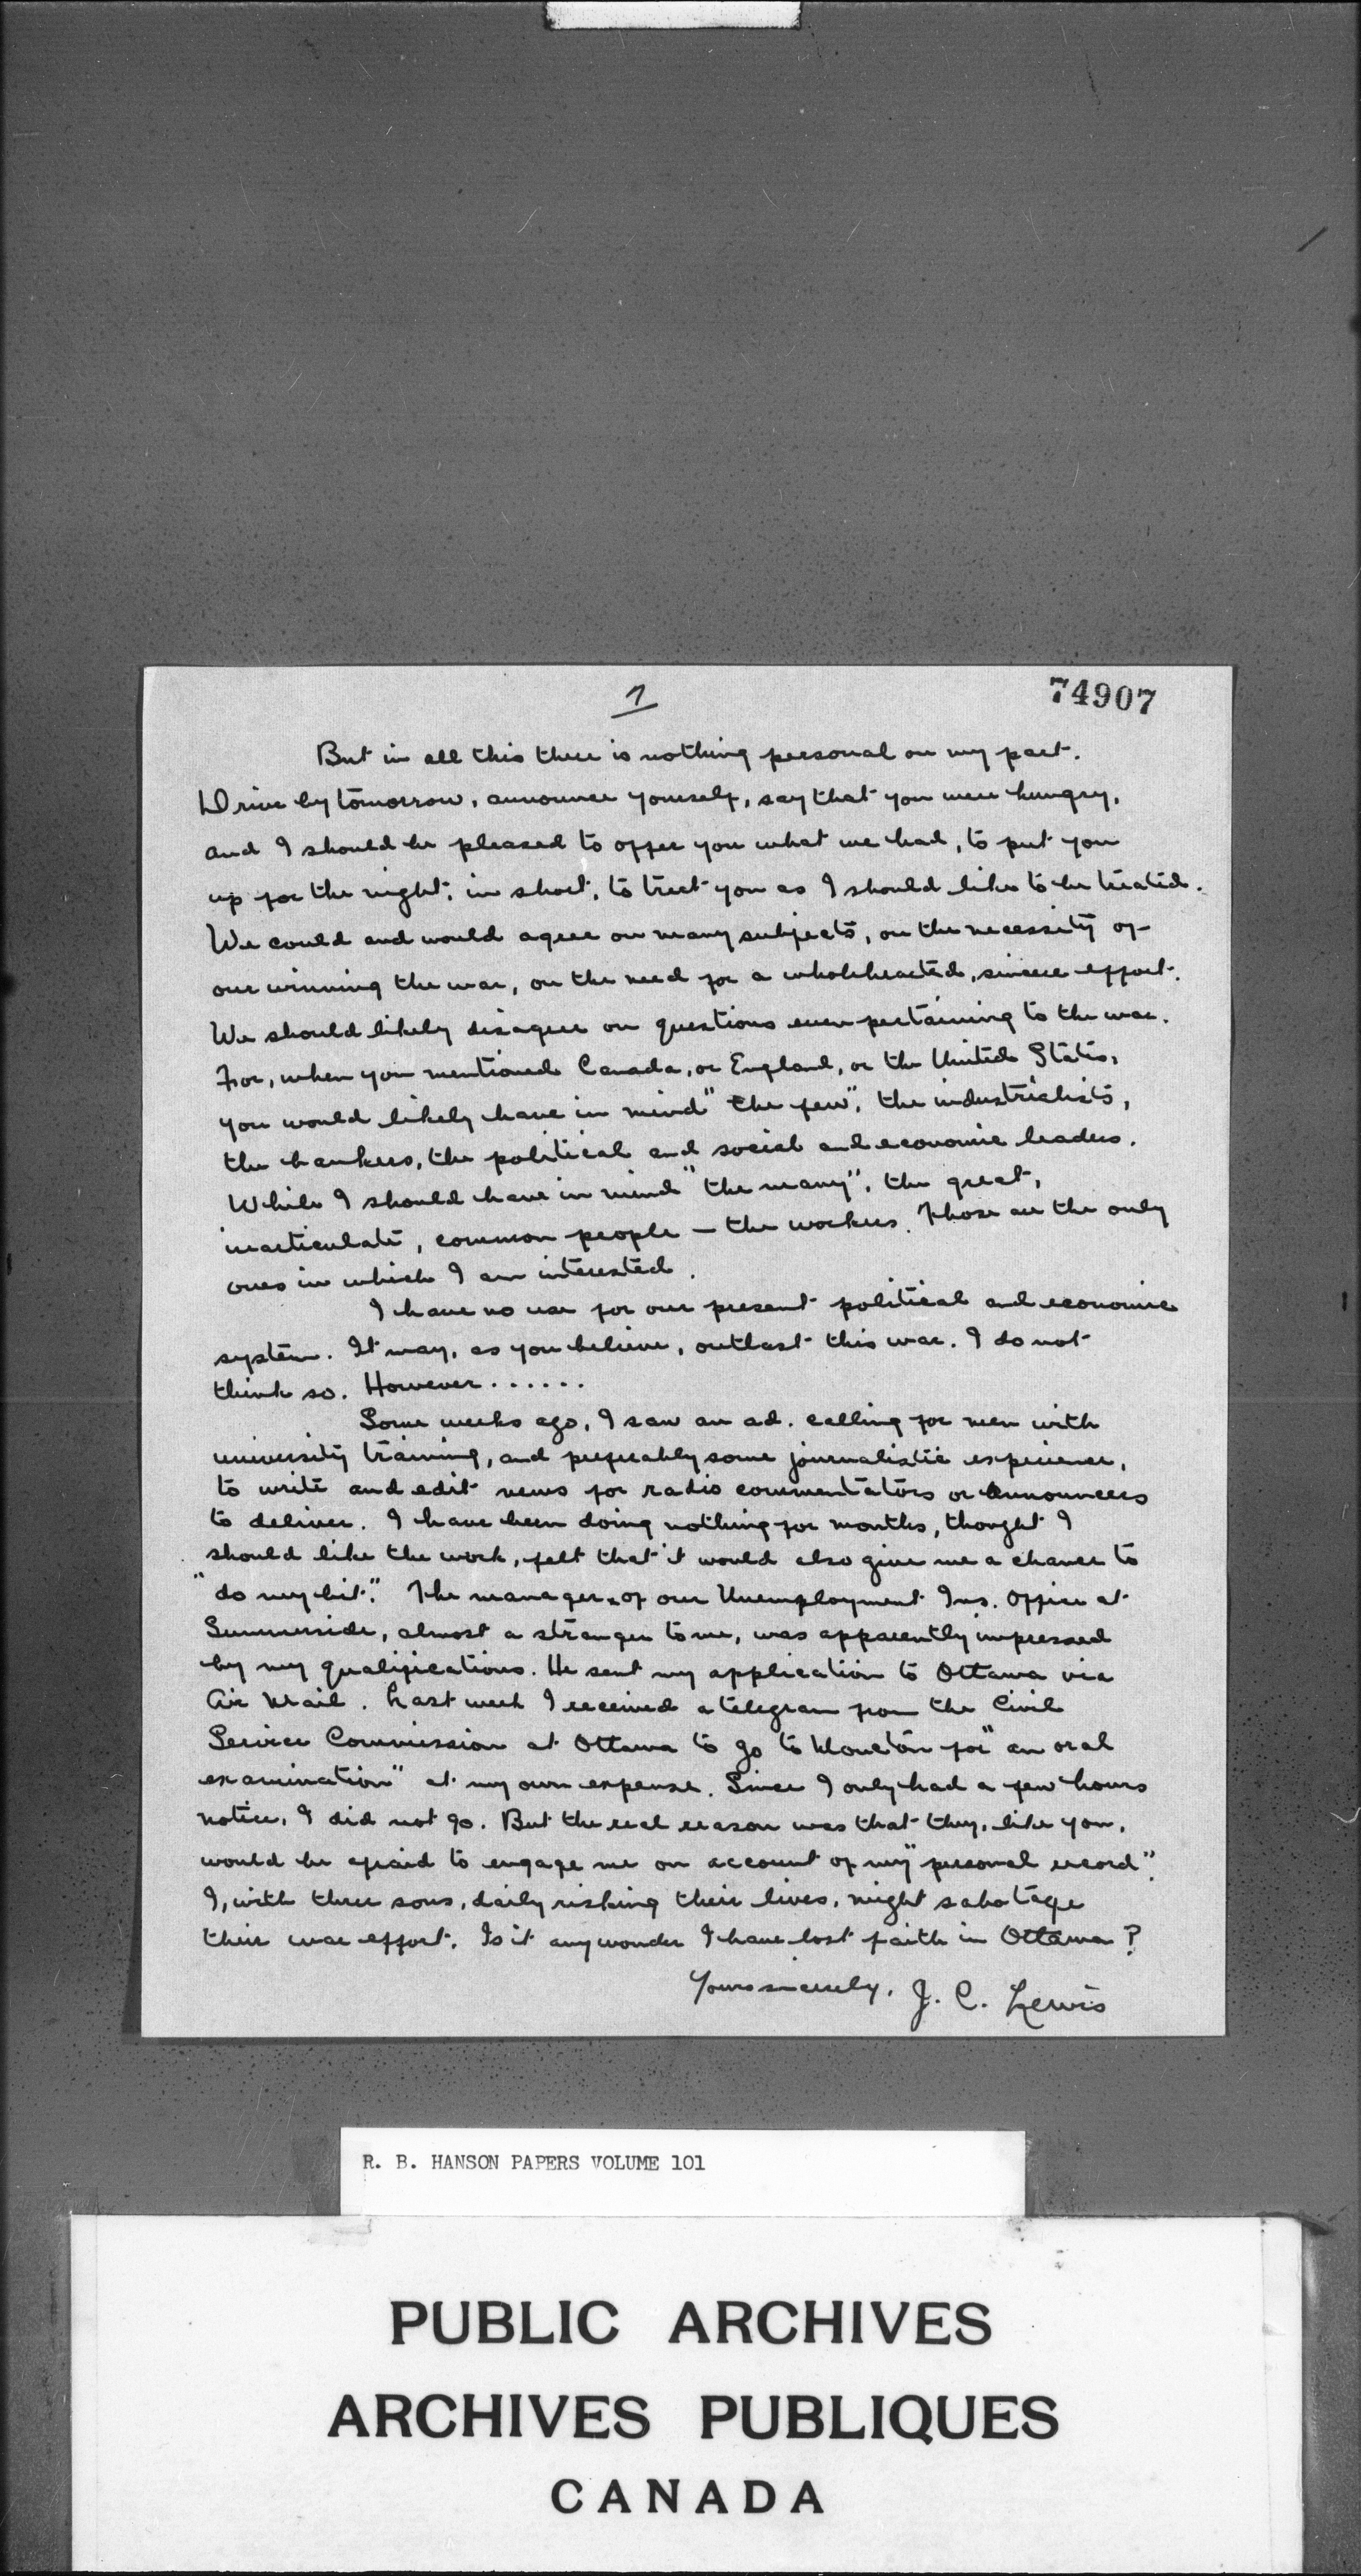 7
74907
But in all this there is nothing personal on my part.
Drive by tomorrow, announce yourself, say that you were hungry,
and I should be pleased to offer you what we had, to put you
up for the night, in short, to treat you as I should like to be treated.
We could and would agree on many subjects, on the necessity of
our winning the war, on the need for a wholehearted, sincere effort.
We should likely disagree on questions even pertaining to the war.
For, when you mentioned Canada, or England, or the United States,
you would likely have in mind "the few", the industrialists,
the bankers, the political and social and economic leaders.
While I should have in mind "the many", the great,
inarticulate, common people — the workers. Those are the only
ones in which I am interested.
I have no use for our present political and economic
system. It may, as you believe, outlast this war. I do not
think so. However......
Some weeks ago, I saw an ad. calling for men with
university training, and preferably some journalistic experience,
to write and edit news for radio commentators or announcers
to deliver. I have been doing nothing for months, thought I
should like the work, felt that it would also give me a chance to
"do my bit." The manager of our Unemployment Ins. Office at
Summerside, almost a stranger to me, was apparently impressed
by my qualifications. He sent my application to Ottawa via
Air Mail. Last week I received a telegram from the Civil
Service Commission at Ottawa to go to Moncton for "an oral
examination" at my own expense. Since I only had a few hours
notice, I did not go. But the real reason was that they, like you,
would be afraid to engage me on account of my "personal record".
I, with three sons, daily risking their lives, might sabotage
their war effort. Is it any wonder I have lost faith in Ottawa?
Yours sincerely, J. C. Lewis
R. B. HANSON PAPERS VOLUME 101
PUBLIC ARCHIVES
ARCHIVES PUBLIQUES
CANADA